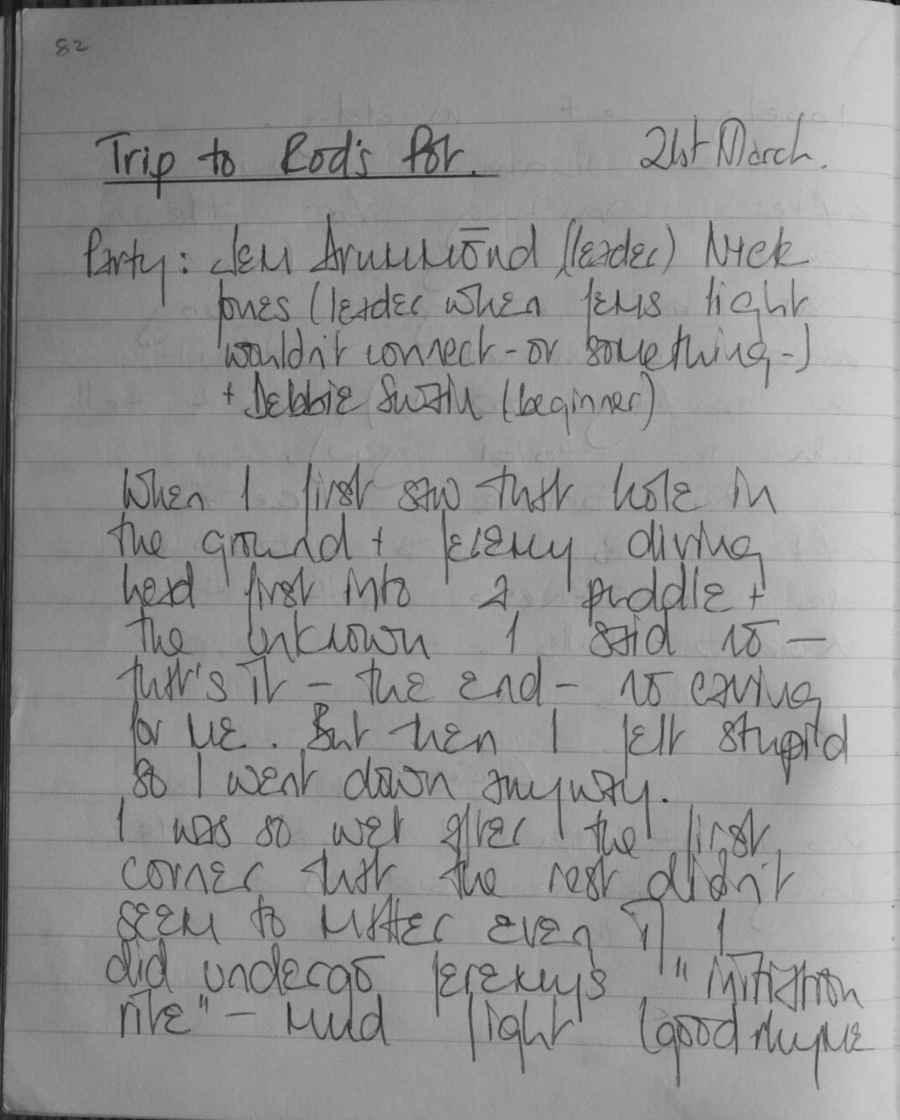 82
Trip to Rod's Pot. 21st March.
Party: Jem Drummond (leader) Nick
Jones (leader when Jems light
wouldn't connect - or something -)
+ Debbie Swain (beginner)
When I first saw that hole in
the ground + Jeremy diving
head first into a puddle +
the unknown I said no —
that's it - the end - no caving
for me. But then I felt stupid
so I went down anyway.
I was so wet after the first
corner that the rest didn't
seem to matter even if I
did undergo Jeremys "initiation
rite" - mud fight (good rhyme